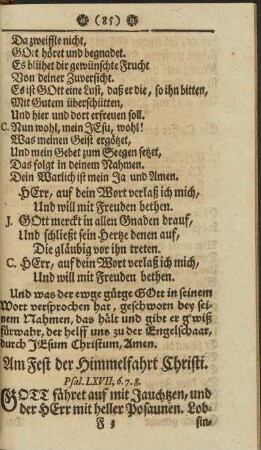 (85)
Da zweiffle nicht,
GOtt höret und begnadet.
Es blühet dir gewünschte Frucht
Von deiner Zuversicht.
Es ist GOtt eine Lust, daß er die, so ihn bitten,
Mit Gutem überschütten,
Und hier und dort erfreuen soll.
C. Nun wohl, mein JEsu, wohl!
Was meinen Geist ergötzet,
Und mein Gebet zum Seegen setzet,
Das folgt in deinem Nahmen.
Dein Warlich ist mein Ja und Amen.
HErr, auf dein Wort verlaß ich mich,
Und will mit Freuden bethen.
J. GOtt merckt in allen Gnaden drauf,
Und schließt sein Hertze denen auf,
Die gläubig vor ihn treten.
C. HErr, auf dein Wort verlaß ich mich,
Und will mit Freuden bethen.
Und was der ewge gütge GOtt in seinem
Wort versprochen hat, geschworn bey sei-
nem Nahmen, das hält und gibt er g'wiß
fürwahr, der helff uns zu der Engelschaar,
durch JEsum Christum, Amen.
Am Fest der Himmelfahrt Christi.
Psal. LXVII, 6. 7. 8.
GOTT fähret auf mit Jauchtzen, und
der HErr mit heller Posaunen. Lob-
F 3 sin-